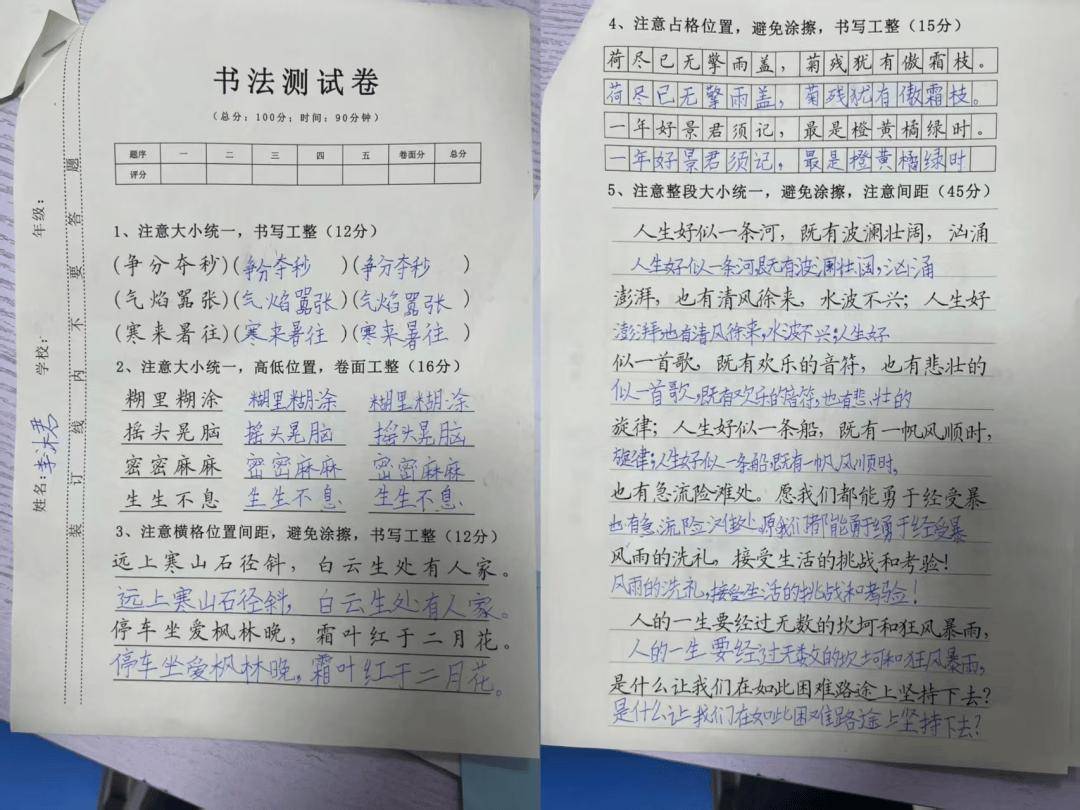 书法测试卷
（总分：100分；时间：90分钟）
题序 一 二 三 四 五 卷面分 总分
评分
年级：
学校：
姓名：李沐君
装订线内不要答题
1、注意大小统一，书写工整（12分）
(争分夺秒)(争分夺秒)(争分夺秒)
(气焰嚣张)(气焰嚣张)(气焰嚣张)
(寒来暑往)(寒来暑往)(寒来暑往)
2、注意大小统一，高低位置，卷面工整（16分）
糊里糊涂 糊里糊涂 糊里糊涂
摇头晃脑 摇头晃脑 摇头晃脑
密密麻麻 密密麻麻 密密麻麻
生生不息 生生不息 生生不息
3、注意横格位置间距，避免涂擦，书写工整（12分）
远上寒山石径斜，白云生处有人家。
远上寒山石径斜，白云生处有人家。
停车坐爱枫林晚，霜叶红于二月花。
停车坐爱枫林晚，霜叶红于二月花。
4、注意占格位置，避免涂擦，书写工整（15分）
荷尽已无擎雨盖，菊残犹有傲霜枝。
荷尽已无擎雨盖，菊残犹有傲霜枝。
一年好景君须记，最是橙黄橘绿时。
一年好景君须记，最是橙黄橘绿时
5、注意整段大小统一，避免涂擦，注意间距（45分）
人生好似一条河，既有波澜壮阔，汹涌
人生好似一条河,既有波澜壮阔,汹涌
澎湃，也有清风徐来，水波不兴；人生好
澎湃,也有清风徐来,水波不兴;人生好
似一首歌，既有欢乐的音符，也有悲壮的
似一首歌,既有欢乐的音符,也有悲壮的
旋律；人生好似一条船，既有一帆风顺时，
旋律;人生好似一条船,既有一帆风顺时,
也有急流险滩处。愿我们都能勇于经受暴
也有急流险滩处.愿我们都能勇于勇于经受暴
风雨的洗礼，接受生活的挑战和考验！
风雨的洗礼,接受生活的挑战和考验！
人的一生要经过无数的坎坷和狂风暴雨，
人的一生要经过无数的坎坷和狂风暴雨,
是什么让我们在如此困难路途上坚持下去？
是什么让我们在如此困难路途上坚持下去？